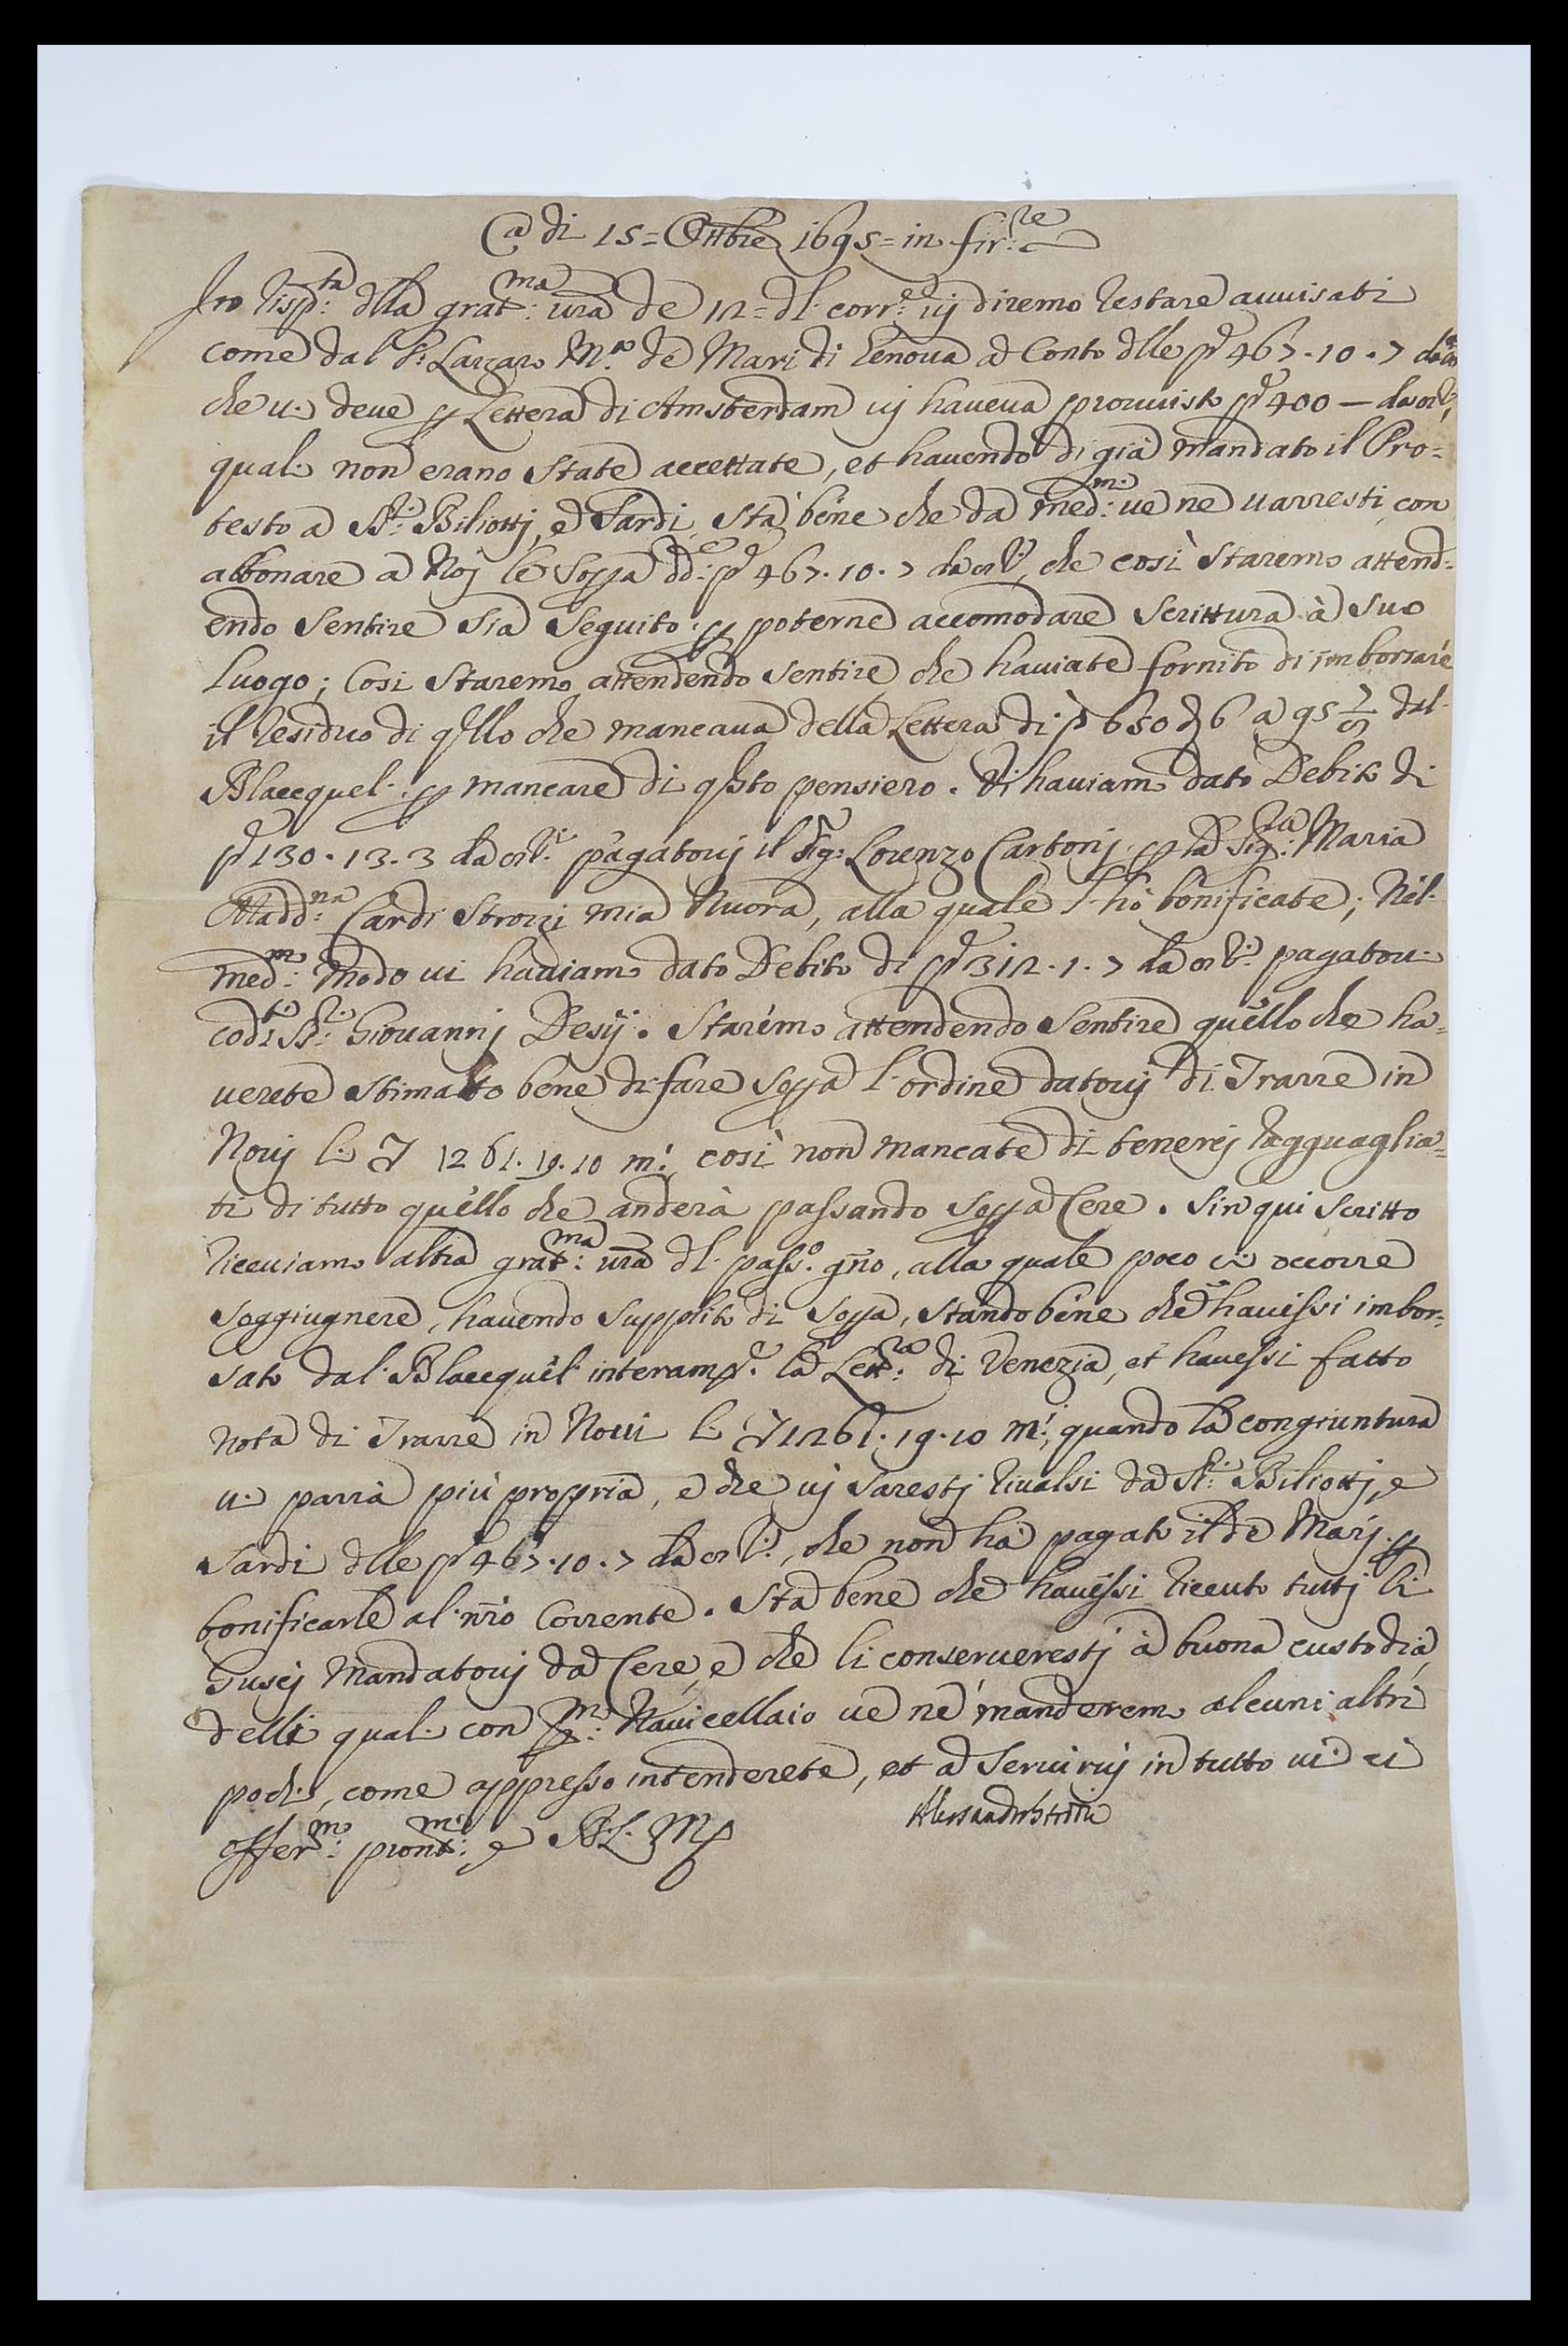 @ di 15= Ottbre 1695= in fir:re
In risp:ta dlla grat:ma vra de 12= dl corr:e vj diremo restare auuisati
come dal Sr: Lazzaro Ma de Mari di Genoua a Conto dlle p 467.10.7 da 8/ri
che u: deue p Lettera di Amsterdam vj haueua prouuisto p 400 — da 8/ri,
qual: non erano State accettate, et hauendo di già mandato il Pro=
testo a SSri: Biliottj, e Sardi, Stà bene che da med:mi ue ne uarresti, con
abbonare a Noj le Soppa dd:e p 467.10.7 da 8/ri, che così Staremo attend=
endo Sentire Sia Seguito p poterne accomodare Scrittura à Suo
luogo; Cosi Staremo attendendo Sentire che hauiate fornito di imborsare
il residuo di qllo che mancaua della Lettera di p 650 d 6 a 95 7/8 dal
Blaecquel: p mancare di qsto pensiero. Vi hauiamo dato Debito di
p 130.13.3 da 8/ri: pagatouj il Sig:r Lorenzo Cartonj p la Sig:ra Maria
Madd:na Cardi Strozzi mia Nuora, alla quale l'hò bonificate; Nel
med:mo Modo ui hauiamo dato Debito di p 312.1.7 da 8/ri: pagatoui
cod:ti SSri: Giouannj Desij. Staremo attendendo Sentire quello che ha=
uerete Stimatto bene di fare Soppa l'ordine datouj di Trarre in
Nouj li 1261.19.10 mi, così non mancate di tenerej ragguaglia=
ti di tutto quello che anderà passando Soppa Cere. Sin qui Scritto
riceuiamo altra grat:ma vra dl pass:o gno, alla quale poco ci occorre
Soggiugnere, hauendo Supplito di Soppa, Stando bene che hauessi imbor=
sato dal Blaecquel interamte la Lett:ra di Venezia, et hauessi fatto
nota di Trarre in Noui li 1261.19.10 mi, quando la congiuntura
u: parrà più propria, e che vj Sarestj riualsi da SSri: Biliottj, e
Sardi dlle p 467.10.7 da 8/ri:, che non hà pagato il de Marj p
bonificarle al nro Corrente. Stà bene che hauessi riceuto tuttj li
Gusci Mandatouj da Cere, e che li conseruerestj à buona custodia,
delli quali con pmo: Nauicellaio ue ne manderemo alcuni altri
pochi, come appresso intenderete, et a Seruiruj in tutto ui ci
offer:mo pront:mi e B.L.M
Alessandro Strozzi